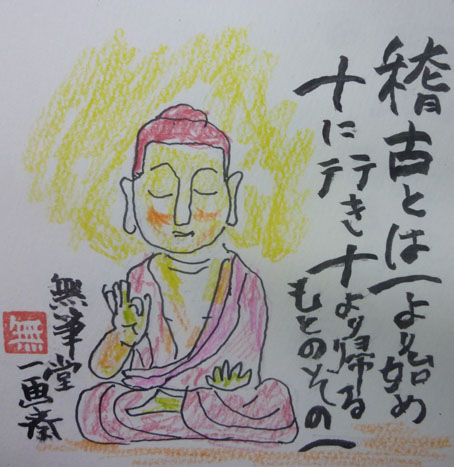 稽古とは一より始め
十に行き十より帰る
もとのその一
無筆堂
一画奏
無